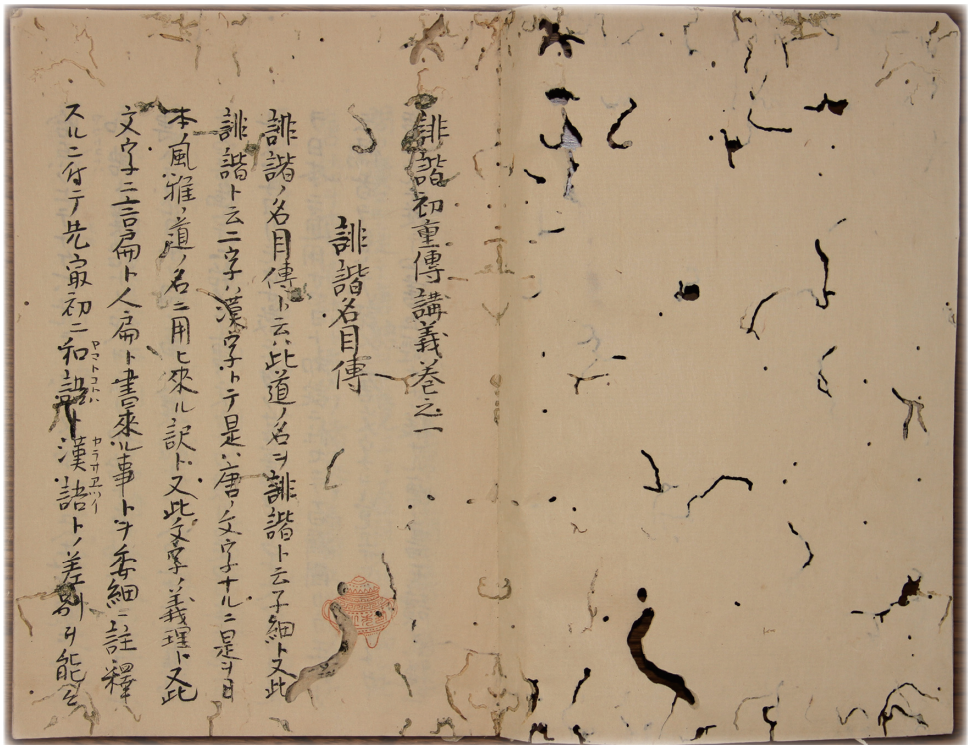 誹諧初重傳講義巻之一
誹諧名目傳
誹諧ノ名目傳ト云ハ此道ノ名ヲ誹諧ト云子細ト又此
誹諧ト云二字ハ漢字トテ是ハ唐ノ文字ナルニ是ヲ日
本風雅ノ道ノ名ニ用ヒ來ル訳ト又此文字ノ義理ト又此
文字ニ言扁ト人扁ト書來ル事トヲ委細ニ註釋
スルニ付テ先㝡初ニ和語ヤマトコトハト漢語カラノト差別ヲ能